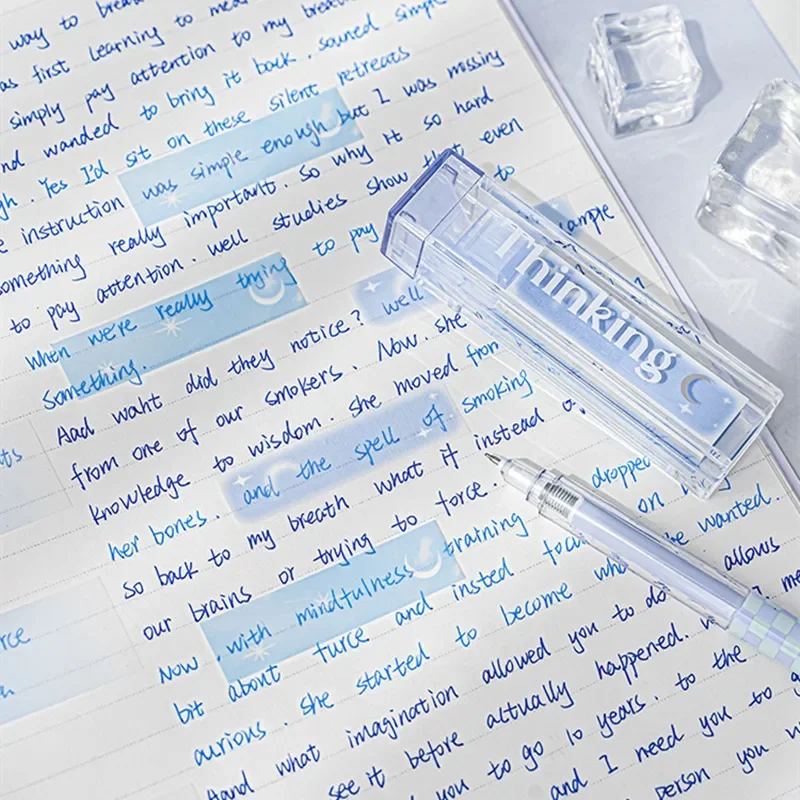 way to brea
as first learning to me
simply pay attention to my brea
nd wanded to bring it back. souned simple
gh. Yes I'd sit on these silent retreats
e instruction was simple enough but I was missing
something really important. So why it so hard
to pay attention. well studies show that even
When we're really trying to pay to
something. well ample
Aad waht did they notice?
from one of our smokers. Now. she
knowledge to wisdom. she moved from
her bones. and the spell of smoking
so back to my breath what if instead o
our brains or trying to force. dropped
Now .with mindfulness training on
bit about furce and insted focu be wanted.
aurious. she started to become wha allows
And what imagination allowed you to do
see it before actually happened.
you to go 10 years. to the
and I need you to g
person you w
Thinking
rce